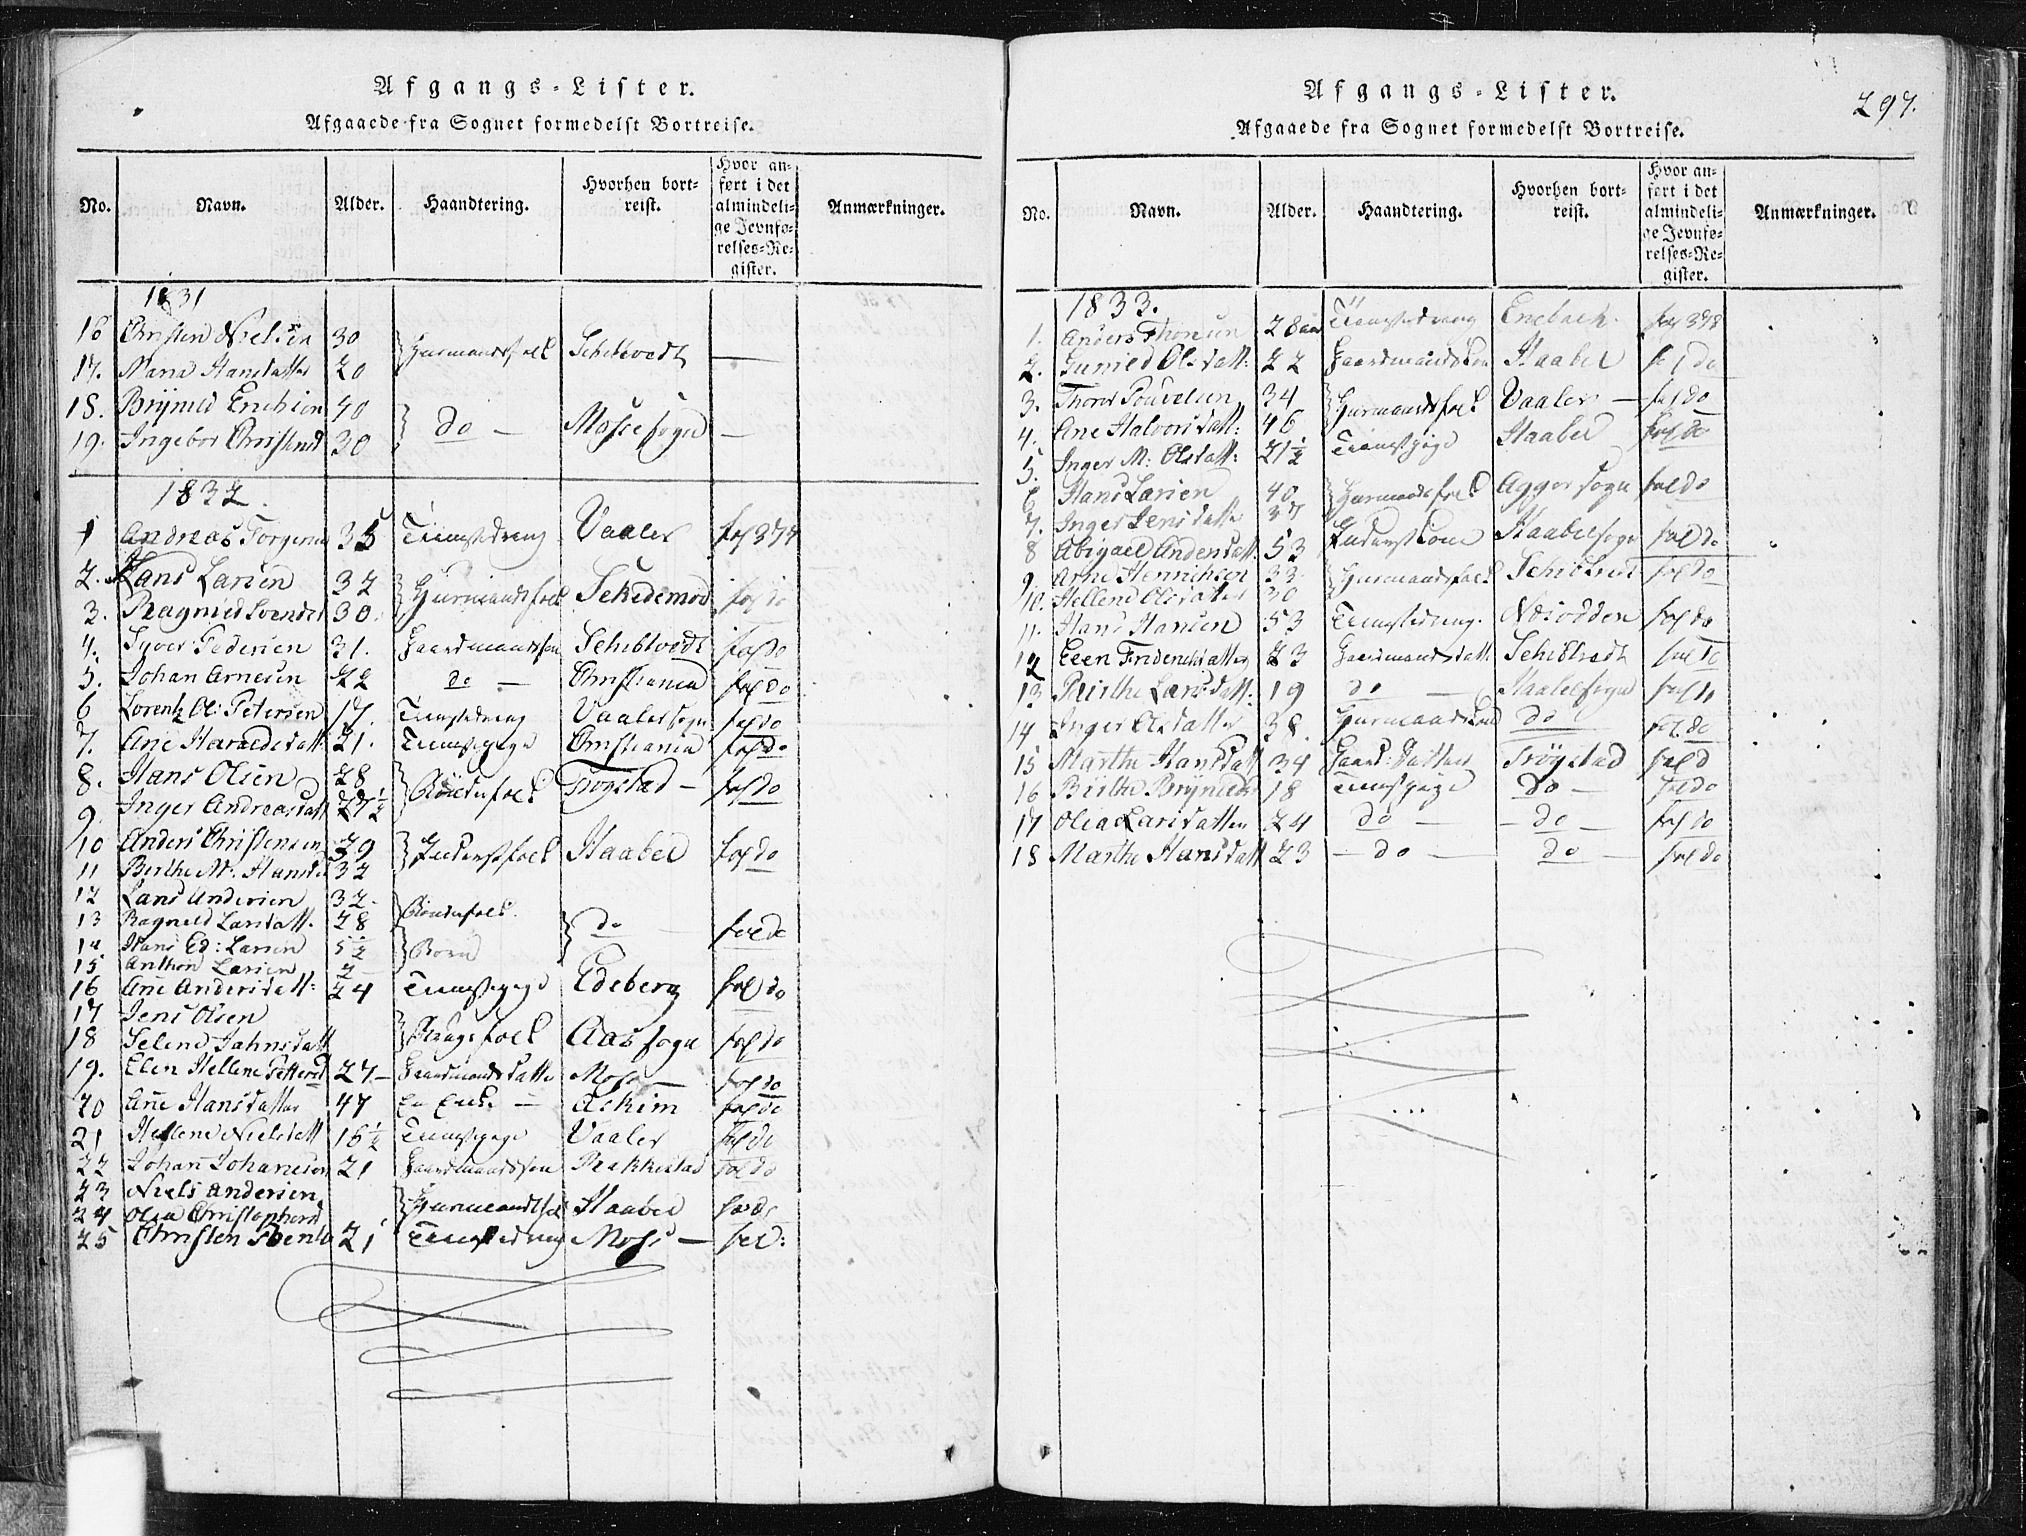 Afgangs-Lister.
Afgaaede fra Sognet formedelst Bortreise.
No. Navn. Alder. Haandtering. Hvorhen bortreist. Hvor anført i det almindelige Jevnførelses-Register. Anmærkninger.
1831
16 Christen Nielsen 30 Huusmandsfolk Schibtvedt —
17. Maria Hansdatter 20
18. Brynild Erichsen 40 do — Mosse sogn —
19. Ingebor 30
1832.
1 Andreas 35 Tienestedreng Vaaler fol 374
2. Hans Larsen 32 Huusmandsfolk fol do
3. Ragnild 30.
4. Syver Pedersen 31. Gaardmandssøn Schibtvedt fol do
5. Johan Arnesen 22 do — Christiania fol do
6 Lorentz Ol: Petersen 17. Tienestedreng Vaaler sogn fol do
7. Ane Haraldsdatt 21. Tienestepige Christiania fol do
8. Hans Olsen 28 Bondefolk Trogstad — fol do
9. Inger Andreasdatt 27½
10 Anders Christensen 29 Haabel fol do
11 Berthe M. Hansd 32
12 Lars Andersen 32. Bondefolk. do fol do
13 Ragnild Larsdatt. 28
14 Hans Ed: Larsen 5½ Børn
15 Anthon Larsen 2
16 Ane Andersdatt: 24 Tienestepige Edeberg fol do
17 Jens Olsen
18 Selene Jahnsdatt Aas sogn fol do
19. Elen Hellene 27 — Gaardmandsdatter Moss — fol do
20 Ane Hansdatter 47 En Enke — Askim fol do
21 Hellene Nielsdatt 16½ Tienestepige Vaaler fol do
22 Johan Johanesen 21 Gaardmandssøn Rakkestad fol do
23 Niels Andersen Huusmandsfolk Haabel fol do
24 Olea Christophersd
25 Christen 21 Tienestedreng Moss — fol d:
Afgangs-Lister.
Afgaaede fra Sognet formedelst Bortreise.
297.
No. Navn. Alder. Haandtering. Hvorhen bortreist. Hvor anført i det almindelige Jevnførelses-Register. Anmærkninger.
1833.
1. Anders Thoresen 28 aar Tienestedreng Enebach. fol 398
2. Gunild Olsdatt: 22 Haabel fol do
3. Thore Poulsen 34 Huusmandsfolk Vaaler — fol do
4. Ane Halvorsdatt: 46
5. Inger M: Olsdatt: 21½ Tienestpige Haabel fol do
6 Hans Larsen 40 Huusmandsfolk Agger sogn fol do
7. Inger Jensdatter 37
8 Abigael Andersdatt. 53 Haabel sogn fol do
9. Arne Henrichsen 33 Huusmandsfolk Schibtvedt fol do
10. Hellene Olsdatter 30
11. Hans Hansen 53 Tienestedreng. Næsodden fol do
12 Elen Friderichsdatter 23 Gaardmandsdatt Schibtvedt fol do
13 Birthe Larsdatt: 19 do — Haabel sogn fol do
14 Inger Olsdatter 38. do fol do
15 Marthe Hansdatt 34 Gaard: Datter Trøgstad fol d
16 Birthe Brynilds 18 Tienestpige do — fol do
17 Olea Larsdatter 24 do — — do — fol do
18 Marthe Hansdatt 23 — do — do — fol do